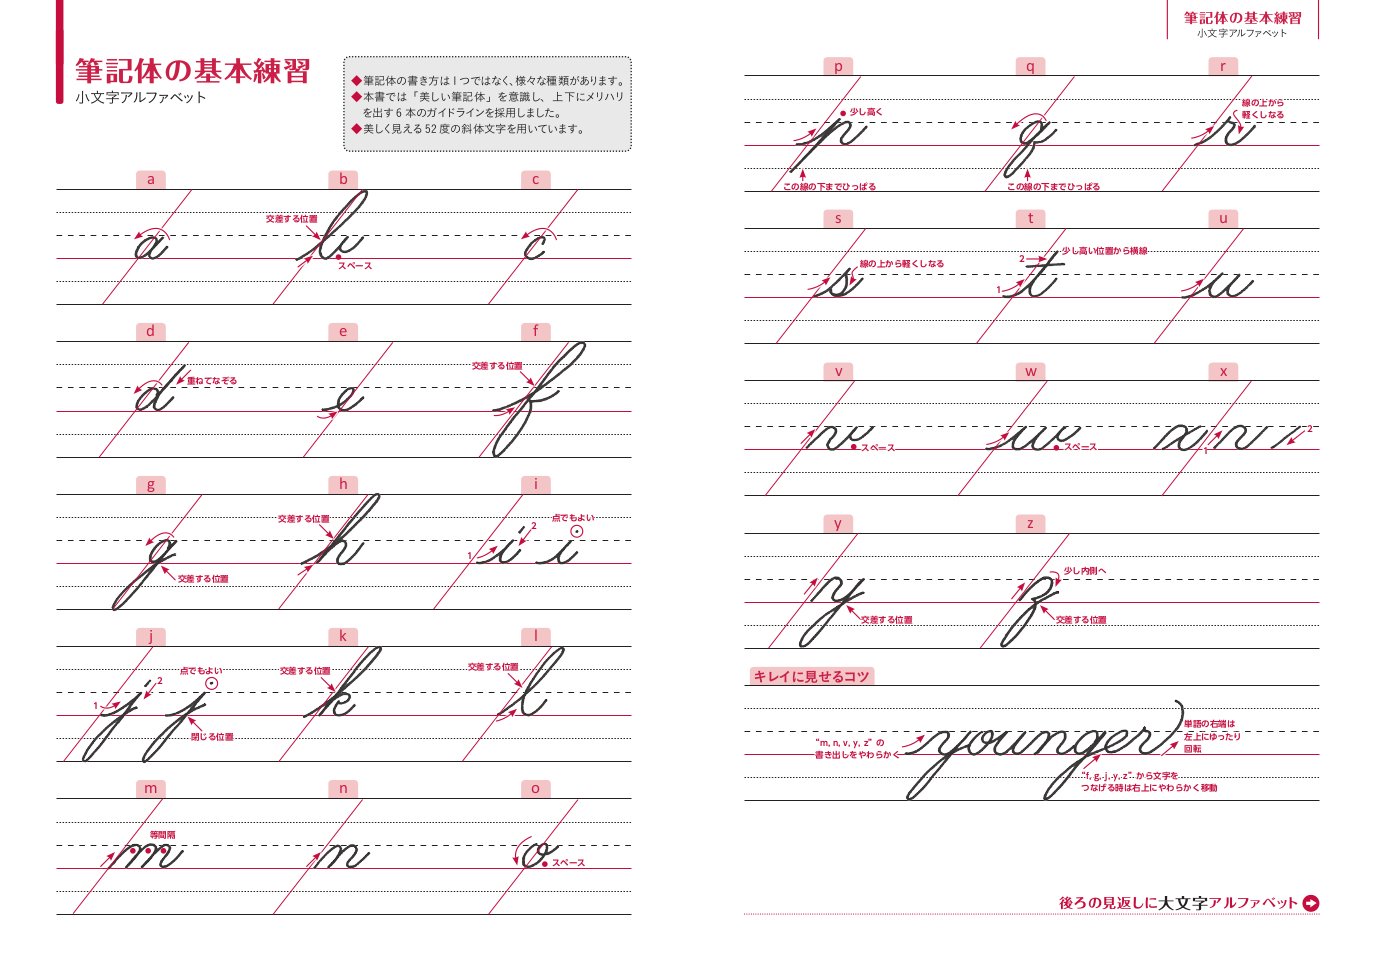 筆記体の基本練習
小文字アルファベット
◆筆記体の書き方は1つではなく、様々な種類があります。
◆本書では「美しい筆記体」を意識し、上下にメリハリ
を出す6本のガイドラインを採用しました。
◆美しく見える52度の斜体文字を用いています。
a b c
a b c
交差する位置
スペース
d e f
d e f
重ねてなぞる
交差する位置
g h i
g h i i
交差する位置
交差する位置
1 2
点でもよい
j k l
j j k l
1 2
点でもよい
閉じる位置
交差する位置
交差する位置
m n o
m n o
等間隔
スペース
筆記体の基本練習
小文字アルファベット
p q r
p q r
少し高く
この線の下までひっぱる
この線の下までひっぱる
線の上から
軽くしなる
s t u
s t u
線の上から軽くしなる
1 2
少し高い位置から横線
v w x
v w x
スペース
スペース
1 2
y z
y z
交差する位置
少し内側へ
交差する位置
キレイに見せるコツ
younger
"m, n, v, y, z" の
書き出しをやわらかく
単語の右端は
左上にゆったり
回転
"f, g, j, y, z" から文字を
つなげる時は右上にやわらかく移動
後ろの見返しに大文字アルファベット